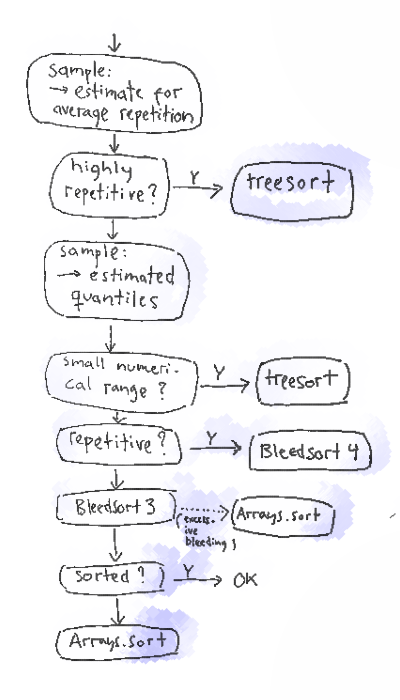 sample:
→ estimate for
average repetition
highly
repetitive?
Y
treesort
sample:
→ estimated
quantiles
small numeri-
cal range?
Y
treesort
repetitive?
Y
Bleedsort 4
Bleedsort 3
(excess-
ive
bleeding)
Arrays.sort
sorted?
Y
OK
Arrays.sort